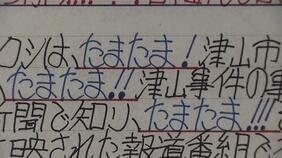 クシは、たまたま!津山市
たまたま!!津山事件の事
聞で知り、たまたま!!!
映された報道番組で